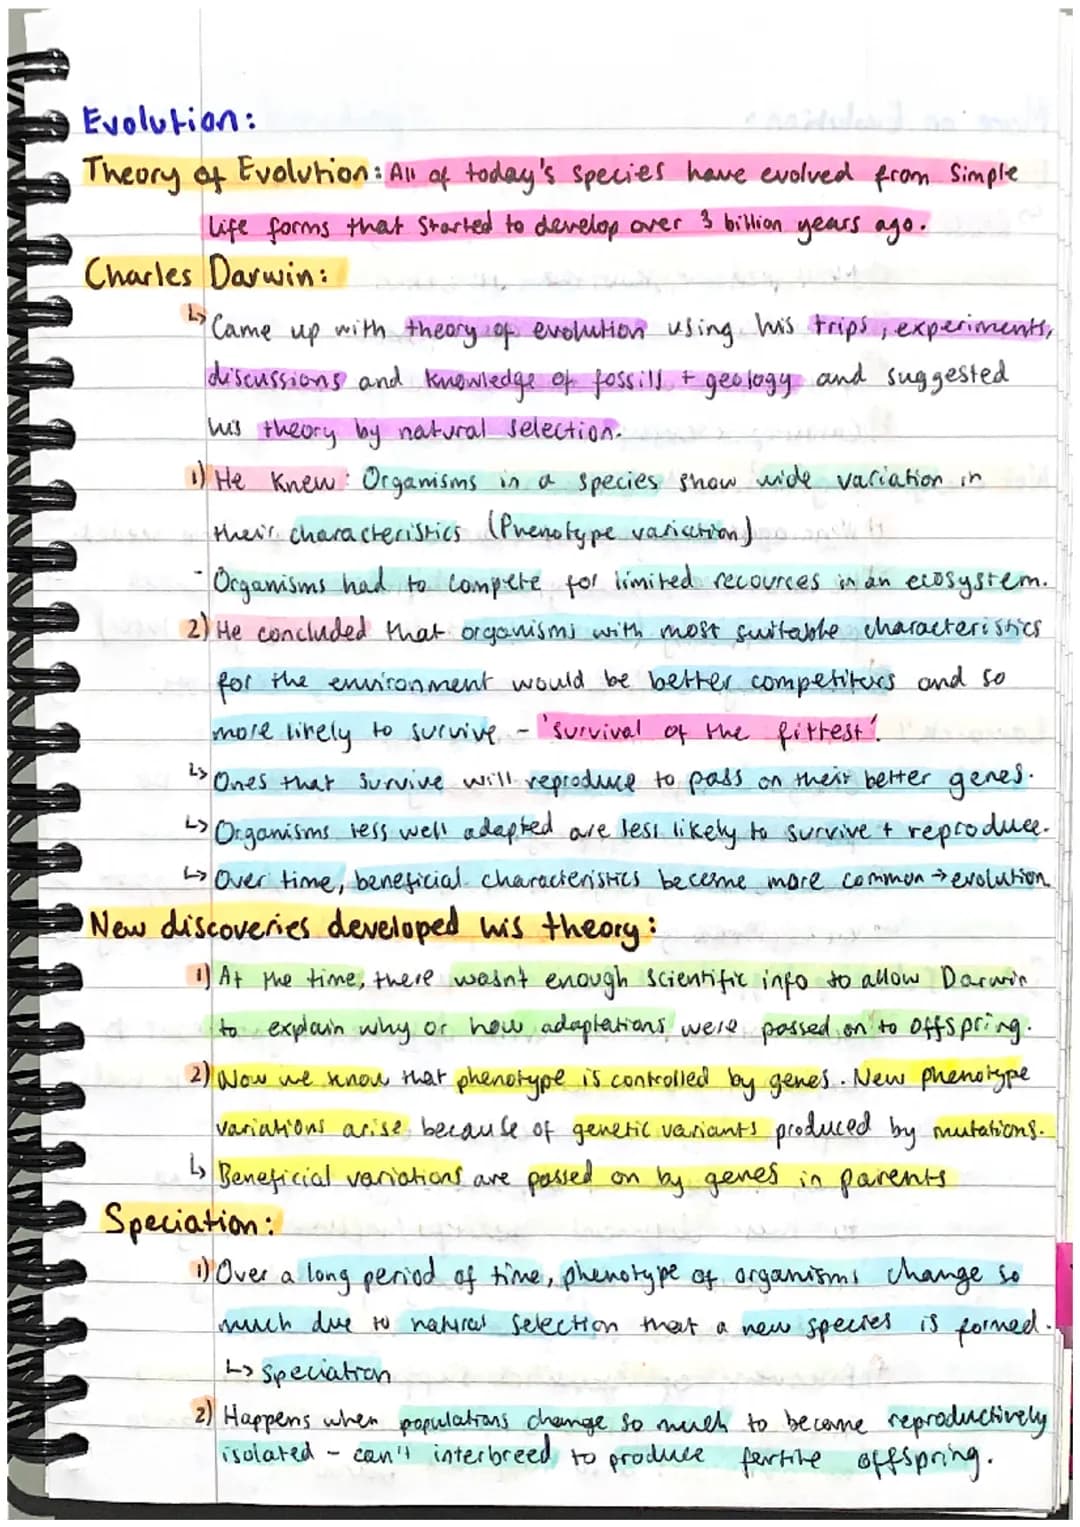 Evolution:
Theory of Evolution: All of today's species have evolved from simple
life forms that started to develop over 3 billion years ago.
Charles Darwin:
↳ Came up with theory of evolution using his trips, experiments,
discussions and knowledge of fossils + geology and suggested
his theory by natural selection.
1) He knew: Organisms in a species show wide variation in
their characteristics (Phenotype variation)
- Organisms had to compete for limited recources in an ecosystem.
2) He concluded that organisms with most suitable characteristics
for the environment would be better competitors and so
more likely to survive - 'survival of the fittest'.
↳ Ones that survive will reproduce to pass on their better genes.
↳ Organisms less well adapted are less likely to survive + reproduce.
↳ Over time, beneficial characteristics become more common → evolution
New discoveries developed his theory:
1) At the time, there wasn't enough scientific info to allow Darwin
to explain why or how adaptations were passed on to offspring.
2) Now we know that phenotype is controlled by genes. New phenotype
variations arise because of genetic variants produced by mutations.
↳ Beneficial variations are passed on by genes in parents
Speciation:
1) Over a long period of time, phenotype of organisms change so
much due to natural selection that a new species is formed.
↳ speciation
2) Happens when populations change so much to become reproductively
isolated - can't interbreed to produce fertile offspring.